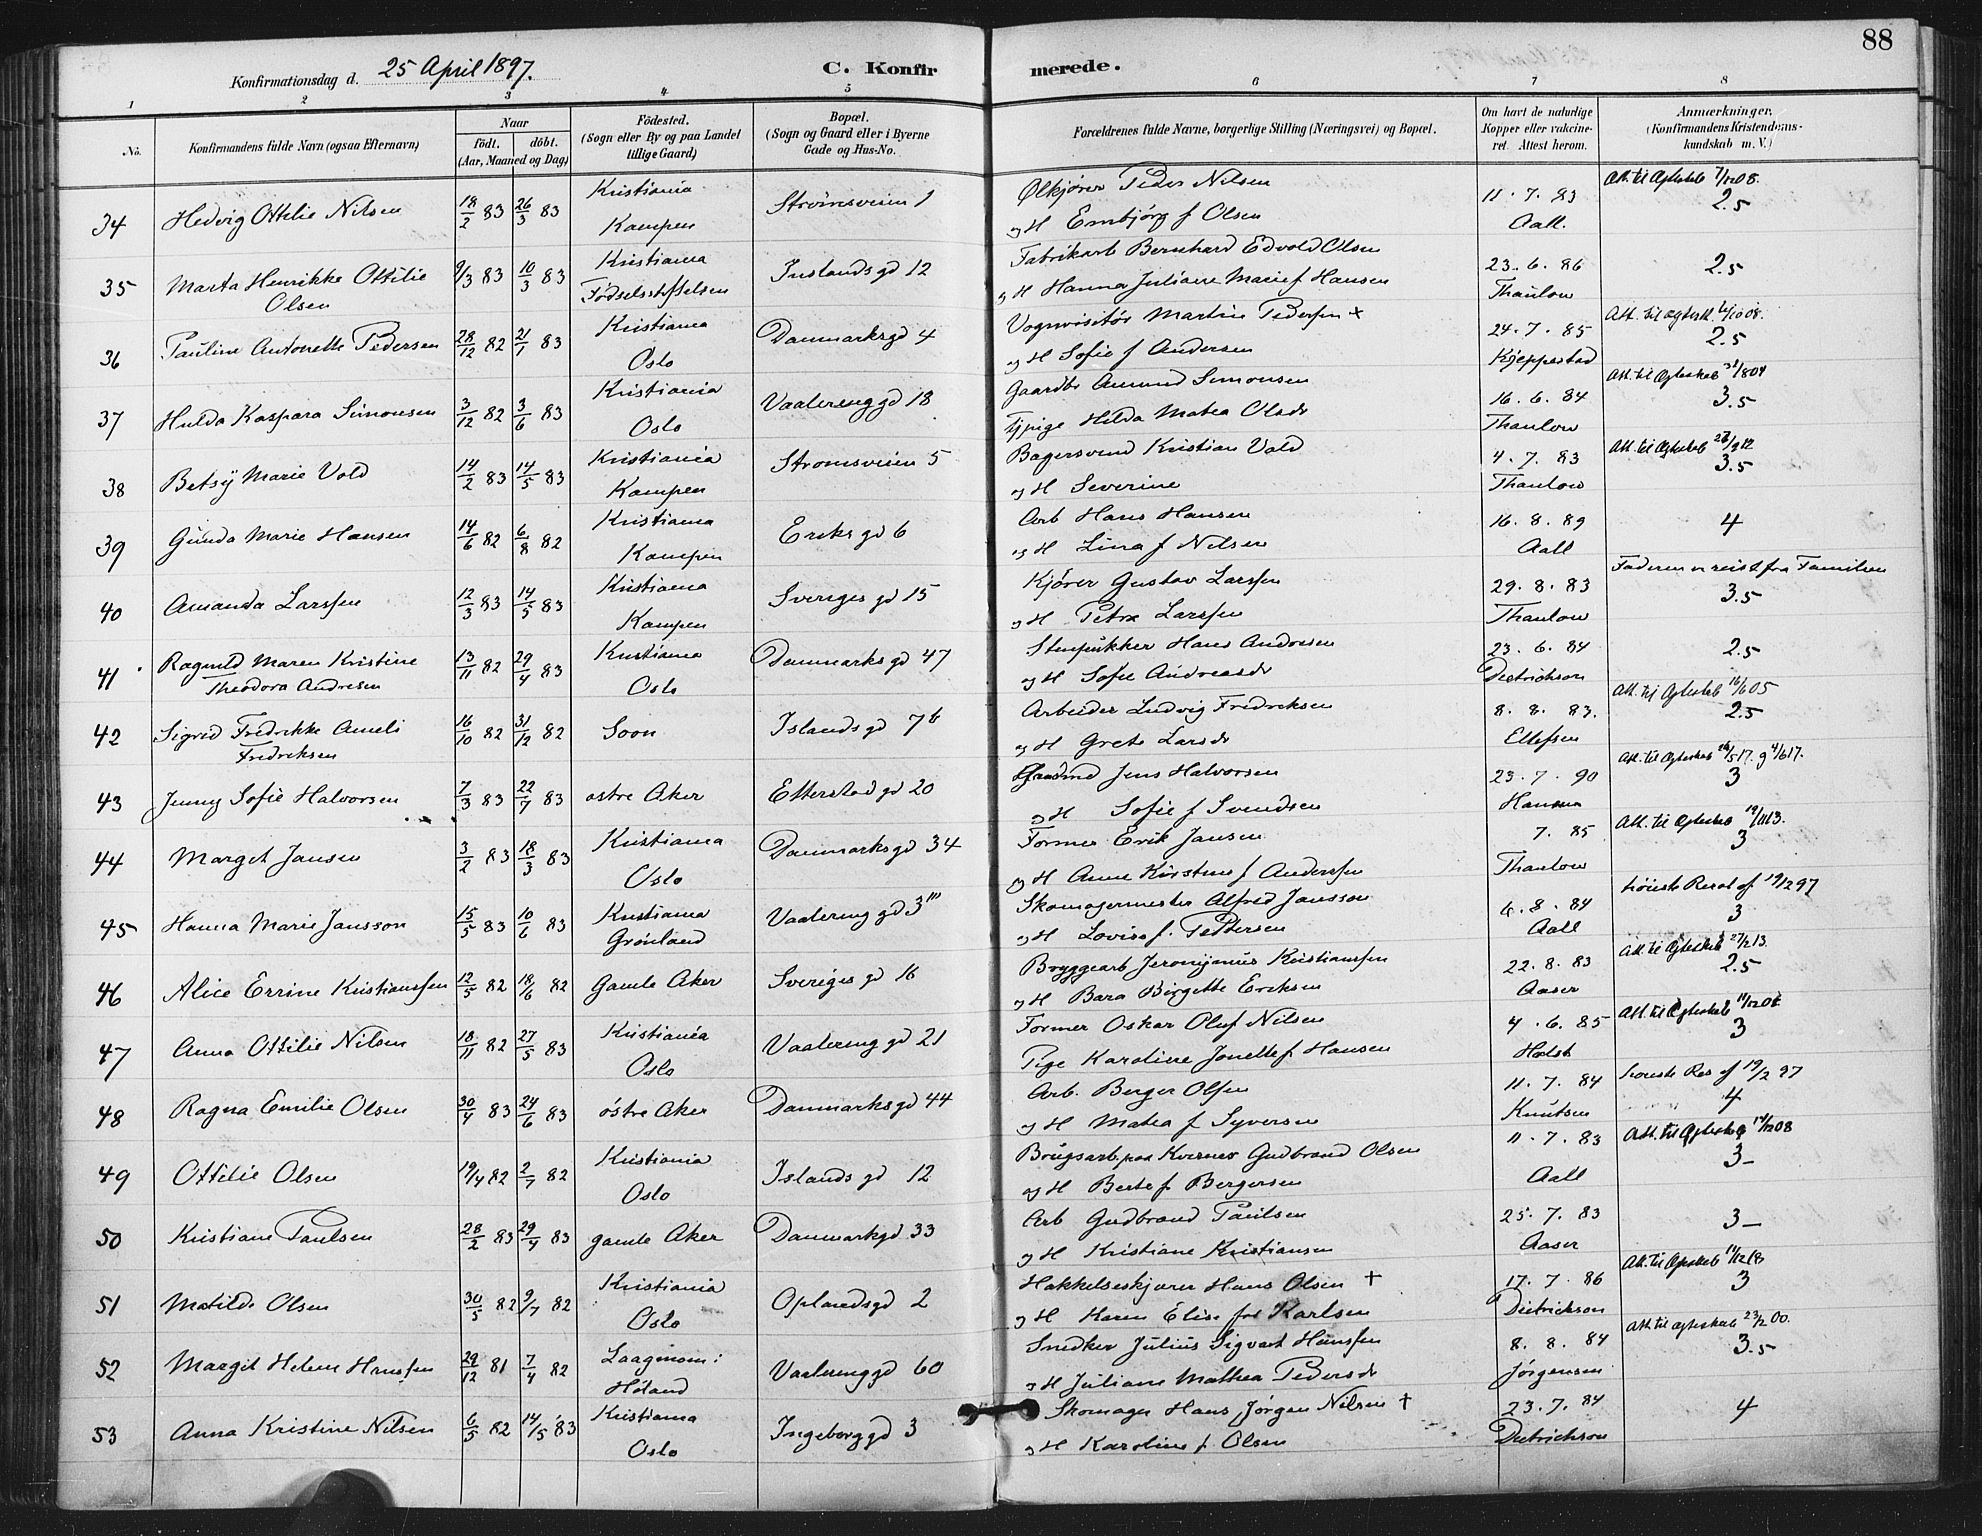 88
Konfirmationsdag d. 25 April 1897.
C. Konfirmerede.
1 2 3 4 5 6 7 8
No.
Konfirmandens fulde Navn (ogsaa Efternavn)
Naar
födt. döbt.
(Aar, Maaned og Dag)
Födested.
(Sogn eller By og paa Landet
tillige Gaard)
Bopæl.
(Sogn og Gaard eller i Byerne
Gade og Hus-No.
Forældrenes fulde Navne, borgerlige Stilling (Næringsvei) og Bopæl.
Om havt de naturlige
Kopper eller vakcine-
ret. Attest herom.
Anmærkninger,
(Konfirmandens Kristendoms-
kundskab m. V.)
34 Hedvig Ottilie Nilsen 18/2 83 26/3 83 Kristiania Kampen Strömsveien 1
Ølkjører Peder Nilsen
og H Embjørg f Olsen
11.7.83 Aall.
Att. til Ægteskab 7/12 08.
2.5
35 Marta Henrikke Ottilie
Olsen
9/3 83 10/3 83 Kristiania Fødselsstiftelsen Islandsgd 12
Fabrikarb Bernhard Edvold Olsen
og H Hanna Juliane Marie f Hansen
23.6.86 Thaulow
2.5
36 Pauline Antonette Pedersen 28/12 82 21/1 83 Kristiania Oslo Danmarksgd 4
Vognvisitör Martin Pedersen +
og H Sofie f Andersen
24.7.85 Kjeppestad
2.5
37 Hulda Kaspara Simonsen 3/12 82 3/6 83 Kristiania Oslo Vaalerenggd 18
Gaardbr Amund Simonsen
Pige Hilda Matea Olsdr
16.6.84 Thaulow
Att. til Ægteskab 31/8 04
3.5
38 Betsy Marie Vold 14/2 83 14/5 83 Kristiania Kampen Stromsveien 5
Bagersvend Kristian Vold
og H Severine
4.7.83 Thaulow
3.5
39 Gunda Marie Hansen 14/6 82 6/8 82 Kristiania Kampen Eriks gd 6
Arb Hans Hansen
og H Lina f Nilsen
16.8.89 Aall
4
40 Amanda Larssen 12/3 83 14/5 83 Kristiania Kampen Sveriges gd 15
Kjører Gustav Larssen
og H Petra Larssen
29.8.83 Thaulow
Faderen er reist fra Familien
3.5
41 Ragnild Maren Kristine
Theodora Andresen
13/11 82 29/4 83 Kristiania Oslo Danmarks gd 47
Stenpukker Hans Andresen
og H Sofie Andreasdr
23.6.84 Dietrichson
2.5
42 Sigrid Fredrikke Ameli
Fredriksen
16/10 82 31/12 82 Soon Islands gd 7b
Arbeider Ludvig Fredriksen
og H Grete Larsdr
8.8.83. Ellefsen
Att. til Ægteskab 16/6 05
2.5
43 Jenny Sofie Halvorsen 7/3 83 22/7 83 østre Aker Etterstad gd 20
Jens Halvorsen
og H Sofie f Svendsen
23.7.90 Hansen
3
44 Margit Jansen 3/2 83 18/3 83 Kristiania Oslo Danmarksgd 34
Former Erik Jansen
og H Anne Kirstine f Anderssen
7.85 Thaulow
Att. til Ægteskab 19/11 13.
3
45 Hanna Marie Jansson 15/5 83 10/6 83 Kristiania Grönland Vaalereng gd 3
Skomagermester Alfred Jansson
og H Lovise f. Pettersen
6.8.84 Aall
Resol af 19/2 97
3
46 Alice Errine Kristianssen 12/5 82 18/6 82 Gamle Aker Sveriges gd 16
Bryggearb Jeronymus Kristianssen
og H Bara Birgette Eriksen
22.8.83 Aaser
Att. til Ægteskab 27/2 13.
2.5
47 Anna Ottilie Nilsen 18/11 82 27/5 83 Kristiania Oslo Vaalereng gd 21
Former Oskar Oluf Nilsen
Pige Karoline Jonette f Hansen
4.6.85 Holst
3
48 Ragna Emilie Olsen 30/4 83 24/6 83 östre Aker Danmarksgd 44
Arb. Berger Olsen
og H Matea f Syversen
11.7.84 Knutsen
Res af 19/2 97
4
49 Ottilie Olsen 19/4 82 2/7 82 Kristiania Oslo Islands gd 12
Brugsarb paa Kverner Gudbrand Olsen
og H Berte f Bergersen
11.7.83 Aall
3-
50 Kristiane Paulsen 28/2 83 29/4 83 gamle Aker Danmarkgd 33
Arb Gudbrand Paulsen
og H Kristiane Kristiansen
25.7.83 Aaser
3-
51 Matilde Olsen 30/5 82 9/7 82 Kristiania Oslo Oplandsgd 2
Hakkelseskjærer Hans Olsen +
og H Karen Elise f Karlsen
17.7.86 Dietrichson
3
52 Margit Helene Hanssen 29/12 81 7/4 82 Höland Vaalerenggd 60
Snedker Julius Sigvart Hanssen
og H Juliane Mathea Pedersdr
8.8.84 Jörgensen
Att. til Ægteskab 23/2 00.
3.5
53 Anna Kristine Nilsen 6/5 82 14/5 83 Kristiania Oslo Ingeborggd 3
Skomager Hans Jörgen Nilsen +
og H Karoline f. Olsen
23.7.84 Dietrichson
4